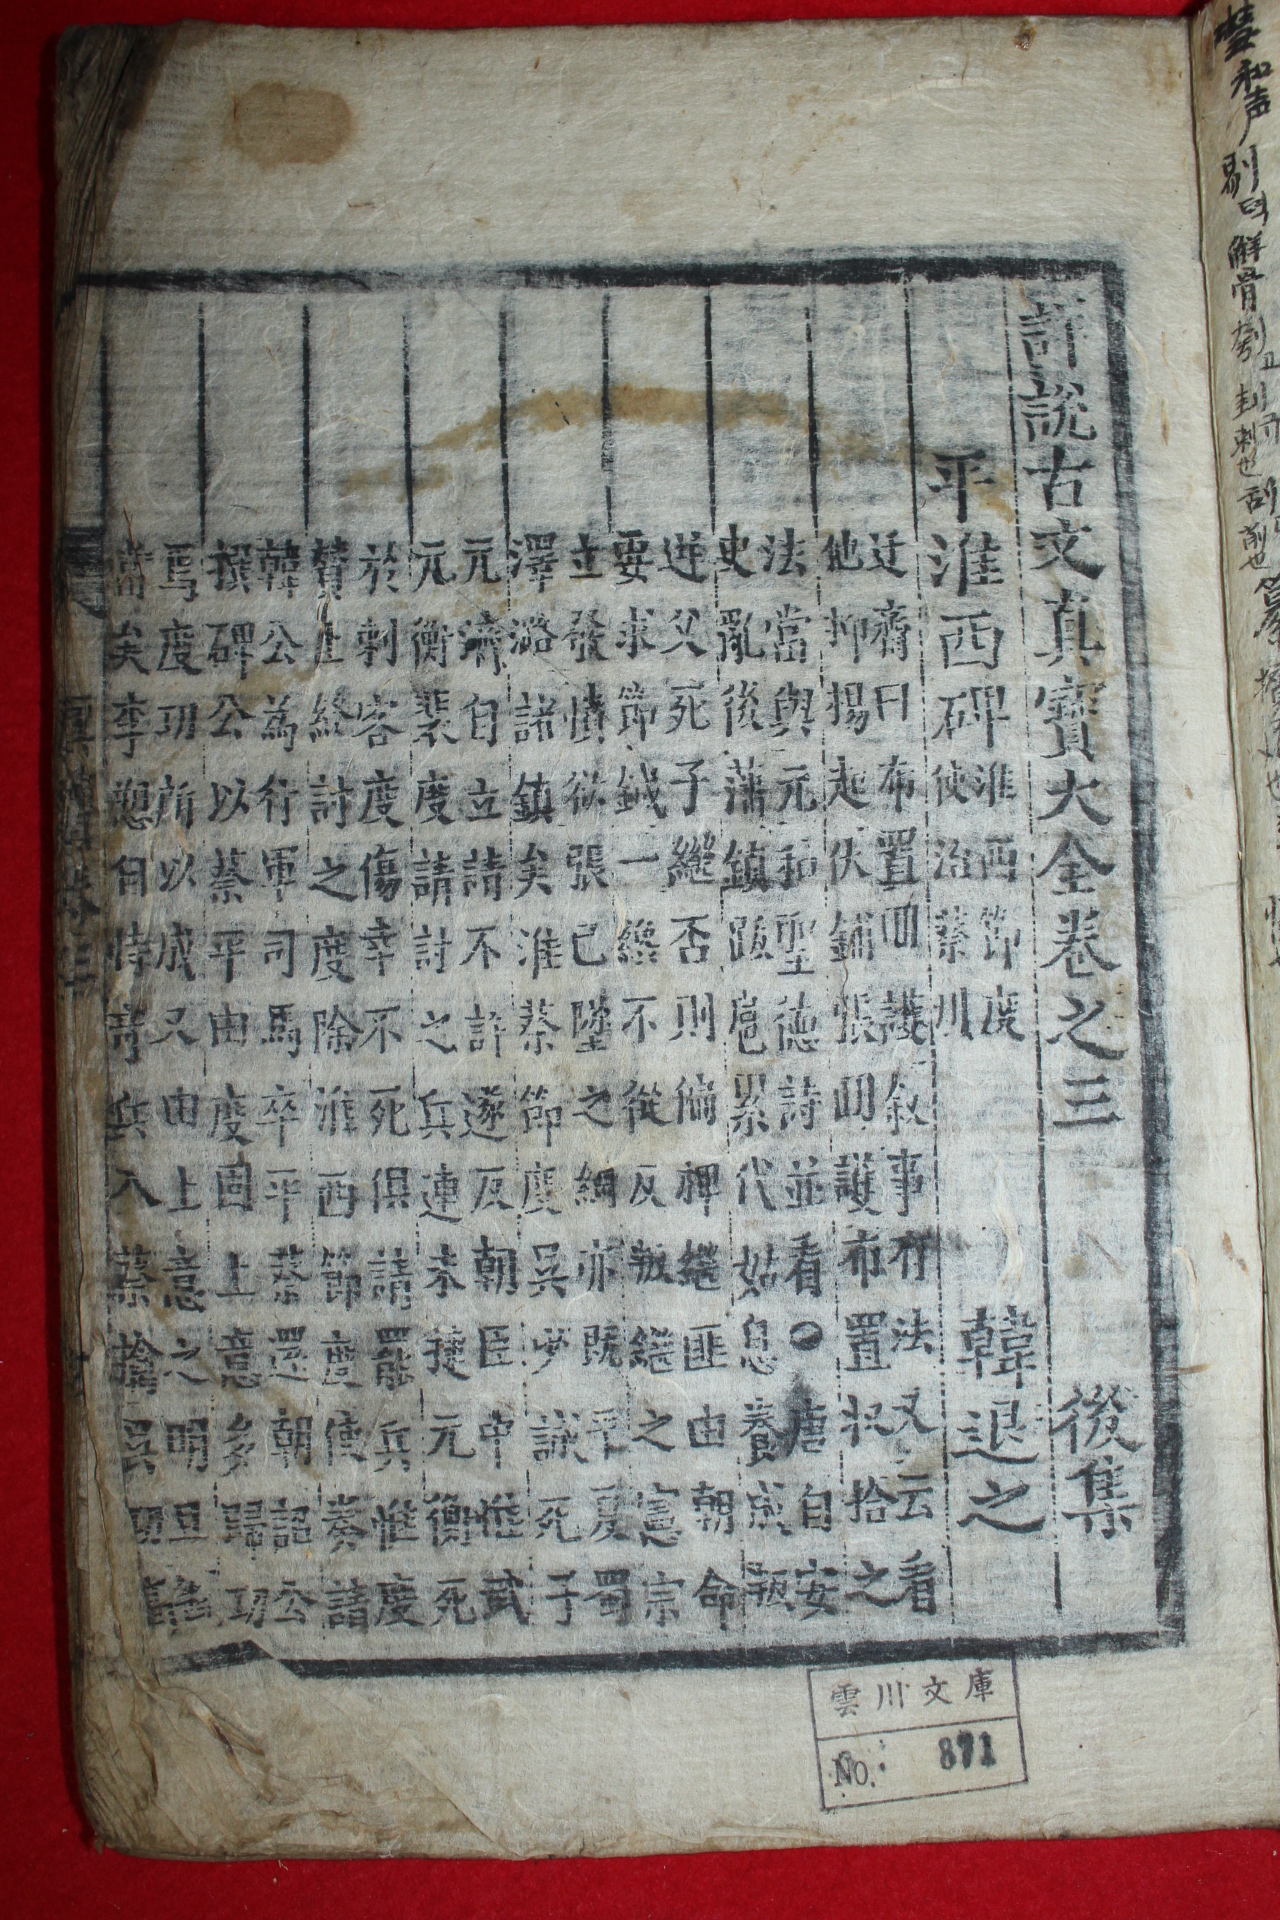 詳說古文真寶大全卷之三 後集
平淮西碑 韓退之
淮西節度
使治蔡州
迂齋曰布置回護叙事有法又云看
他抑揚起伏鋪張回護布置收拾之
法當與元和聖德詩並看●唐自安
史亂後藩鎮跋扈累代姑息養成頑
逆父死子繼否則偏裨繼匪由朝命
要求節鉞一絲不從反叛繼之憲宗
立發憤欲張已墜之綱亦既平夏蜀
澤潞諸鎮矣淮蔡節度吳少誠死子
元濟自立請不許遂反朝臣中惟武
元衡裴度請討之兵連未捷元衡死
於刺客度傷幸不死俱請罷兵惟度
賛上終討之度除淮西節度使奏請
韓公為行軍司馬卒平蔡還朝詔公
撰碑公以蔡平由度固上意多歸功
焉度功所以成又由上意之明且
矣李愬自恃奇兵入蔡擒吳
雲川文庫
No. 871